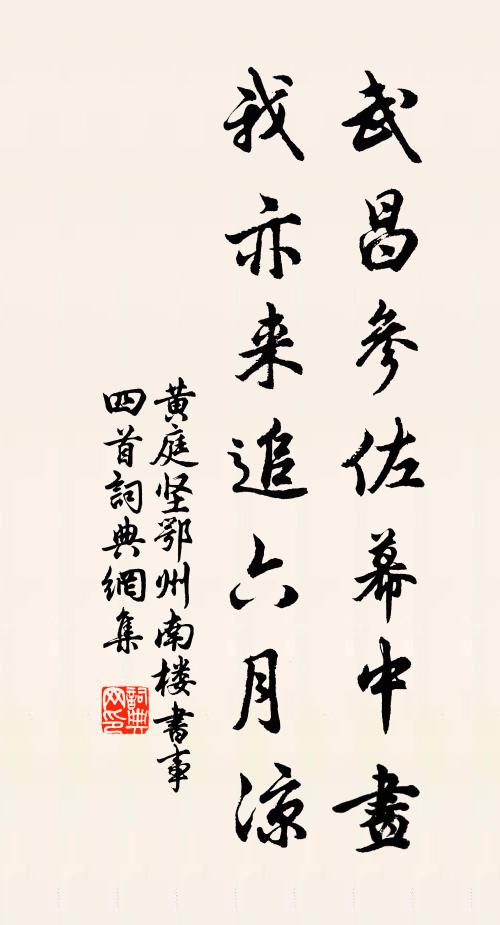 武昌參佐幕中畫
我亦来追六月凉
黄庭坚鄂州南楼書事
四首詞典網集
詞典网印